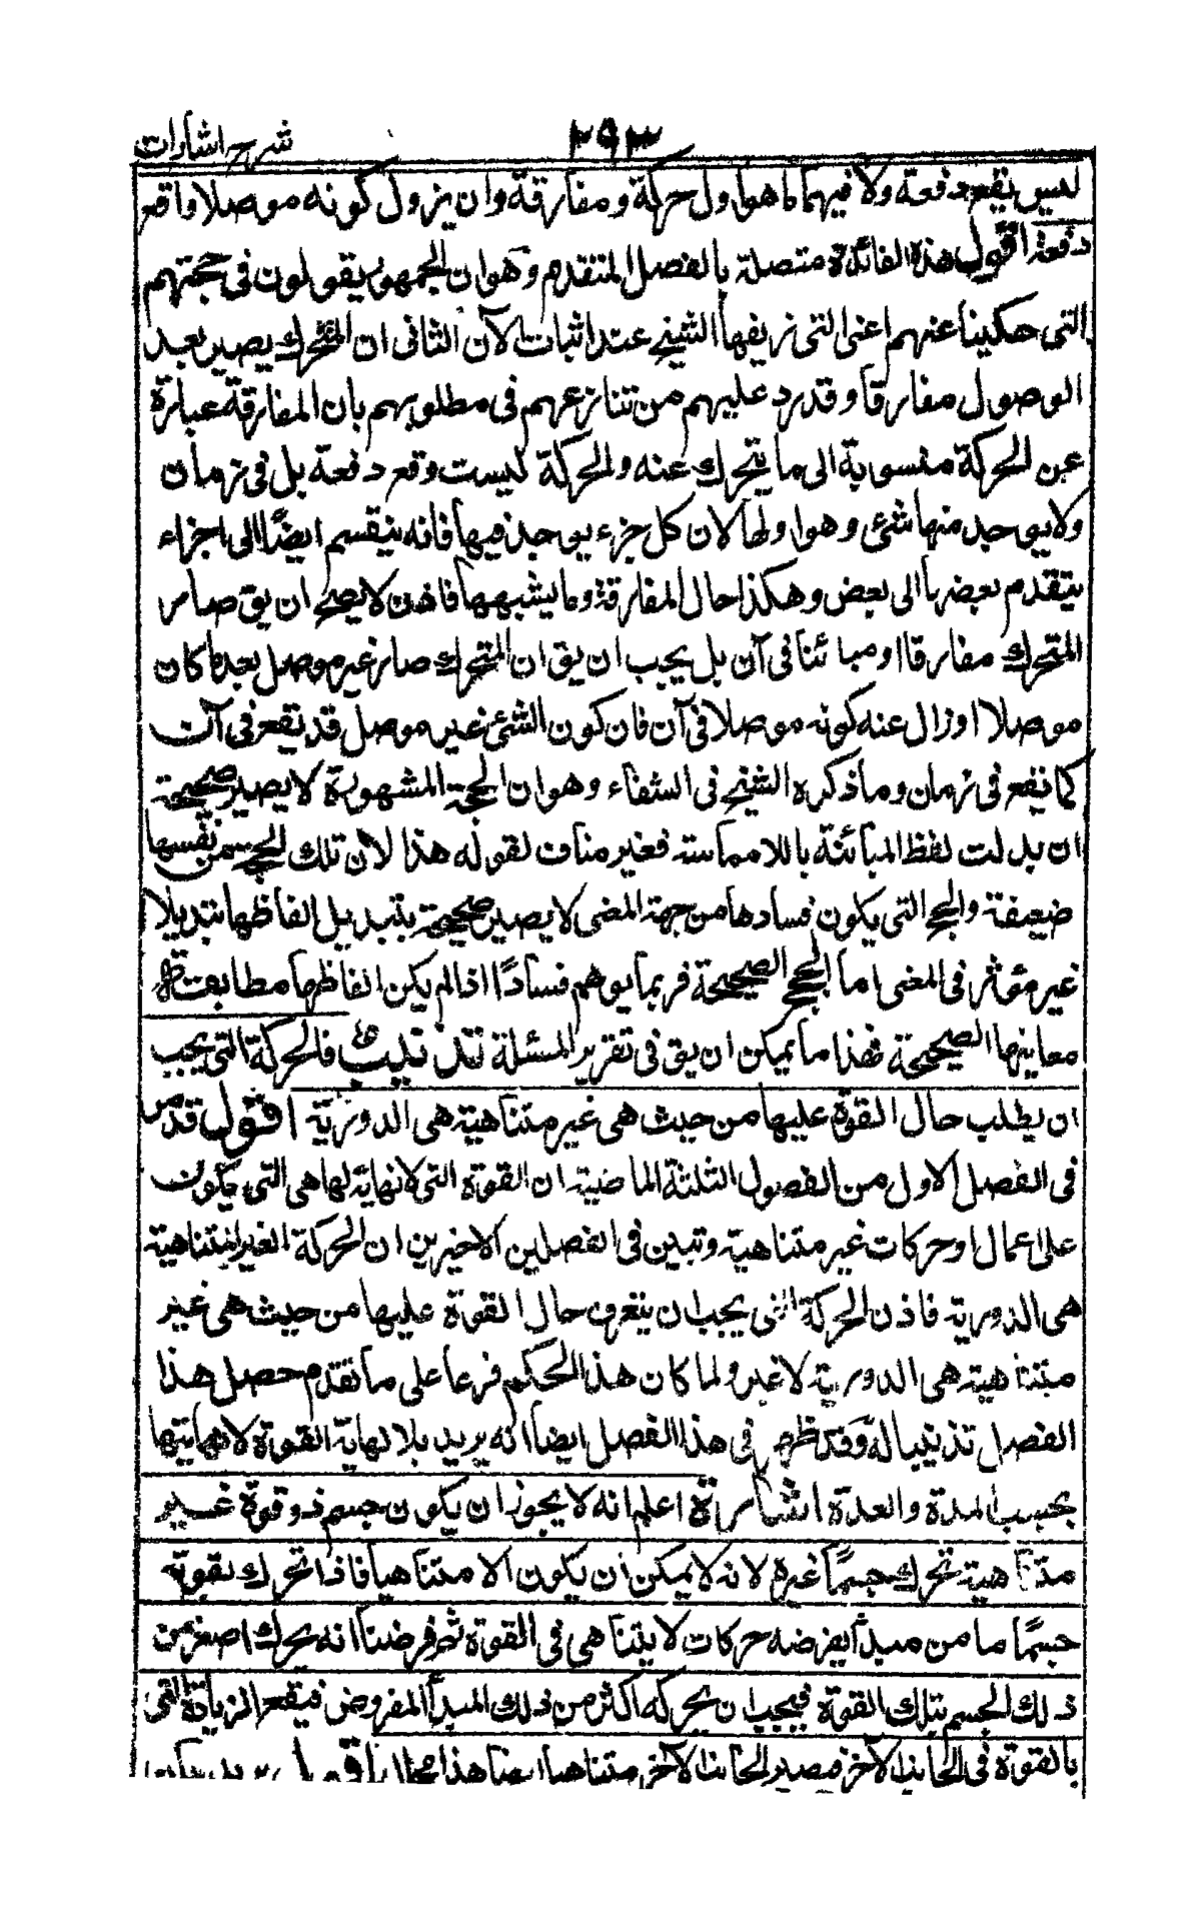 شرح اشارات
٢٩٣
ليس يقع دفعة ولا فيهما ما هو اول حركة ومفارقة وان يزول كونه موصلا واقع
دفعة اقول هذه الفائدة متصلة بالفصل المتقدم وهو ان الجمهور يقولون في حجتهم
التى حكينا عنهم اعنى التى زيفها الشيخ عند اثبات الآن الثانى ان المتحرك يصير بعد
الوصول مفارقا وقد رد عليهم من تنازعهم فى مطلوبهم بان المفارقة عبارة
عن الحركة منسوبة الى ما يتحرك عنه والحركة ليست وقع دفعة بل فى زمان
ولا يوجد منها شئ وهو اولها لان كل جزء يوجد فيها فانه ينقسم ايضًا الى اجزاء
يتقدم بعضها الى بعض وهكذا حال المفارقة وما يشبهها فاذن لا يصح ان يق صار
المتحرك مفارقا او مبائنا فى آن بل يجب ان يق ان المتحرك صار غير موصل بعد ما كان
موصلا او زال عنه كونه موصلا فى آن فان كون الشئ غير موصل قد يقع فى آن
كما يقع فى زمان وما ذكره الشيخ فى الشفاء وهو ان الحجة المشهورة لا يصير صحيحة
ان بدلت لفظ المبائنة باللامماسة فغير مناف لقوله هذا لان تلك الحجج من نفسها
ضعيفة والحجج التى يكون فسادها من جهة المعنى لا يصير صحيحة بتبديل الفاظها تبديلا
غير مؤثر فى المعنى اما الحجج الصحيحة فربما يوهم فسادًا اذا لم يكن الفاظها مطابقة
معانيها الصحيحة فهذا ما يمكن ان يق فى تقرير المسئلة تذنيب فالحركة التى يجب
ان يطلب حال القوة عليها من حيث هى غير متناهية هى الدورية اقول قد مر
فى الفصل الاول من الفصول الثلثة الماضية ان القوة التى لا نهاية لها هى التى يكون
على اعمال او حركات غير متناهية وتبين فى الفصلين الاخيرين ان الحركة الغير المتناهية
هى الدورية فاذن الحركة التى يجب ان يتعرف حال القوة عليها من حيث هى غير
متناهية هى الدورية لا غير ولما كان هذا الحكم فرعا على ما تقدم حصل هذا
الفصل تذنيبا له وقد ظهر فى هذا الفصل ايضا انه يريد بلا نهاية القوة لا نهايتها
بحسب المدة والعدة اشارة اعلم انه لا يجوز ان يكون جسم ذو قوة غير
متناهية تحرك جسمًا غيره لانه لا يمكن ان يكون الا متناهيا فاذا تحرك بقوته
جسمًا ما من مبدأ يفرضه حركات لا يتناهى فى القوة ثم فرضنا انه يحرك اصغر من
ذلك الجسم بتلك القوة فيجب ان يحركه اكثر من ذلك المبدأ المفروض فيقع الزيادة التى
بالقوة فى الجانب الآخر فيصير الجانب الآخر متناهيا ايضا هذا محال اقول